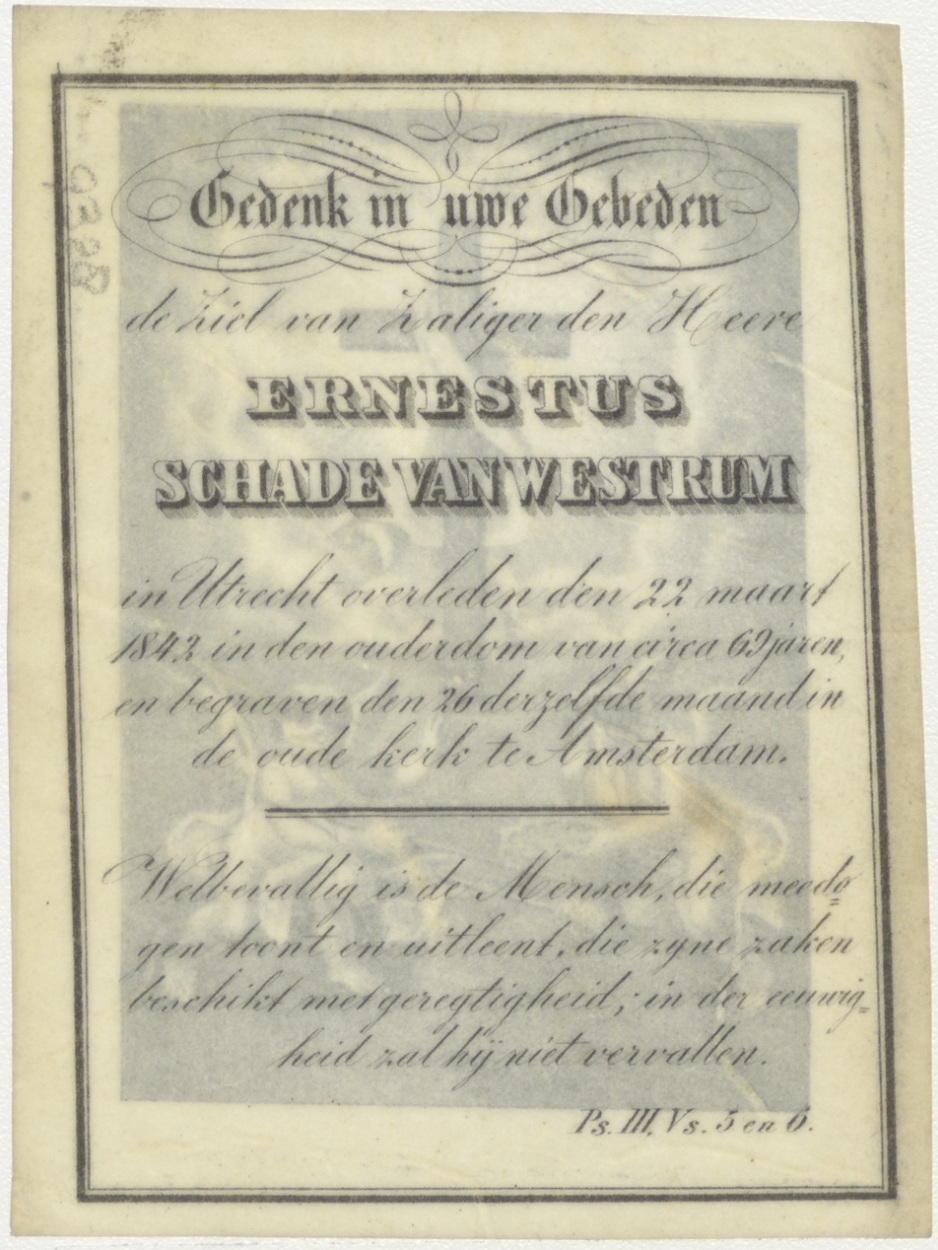 Gedenk in uwe Gebeden
de Ziel van Zaliger den Heere
ERNESTUS
SCHADE VAN WESTRUM
in Utrecht overleden den 22 maart
1842 in den ouderdom van circa 69 jaren,
en begraven den 26 derzelfde maand in
de oude kerk te Amsterdam.
Welbevallig is de Mensch, die meedo=
gen toont en uitleent, die zyne zaken
beschikt met geregtigheid; in der eeuwig=
heid zal hij niet vervallen.
Ps. III, Vs. 5 en 6.